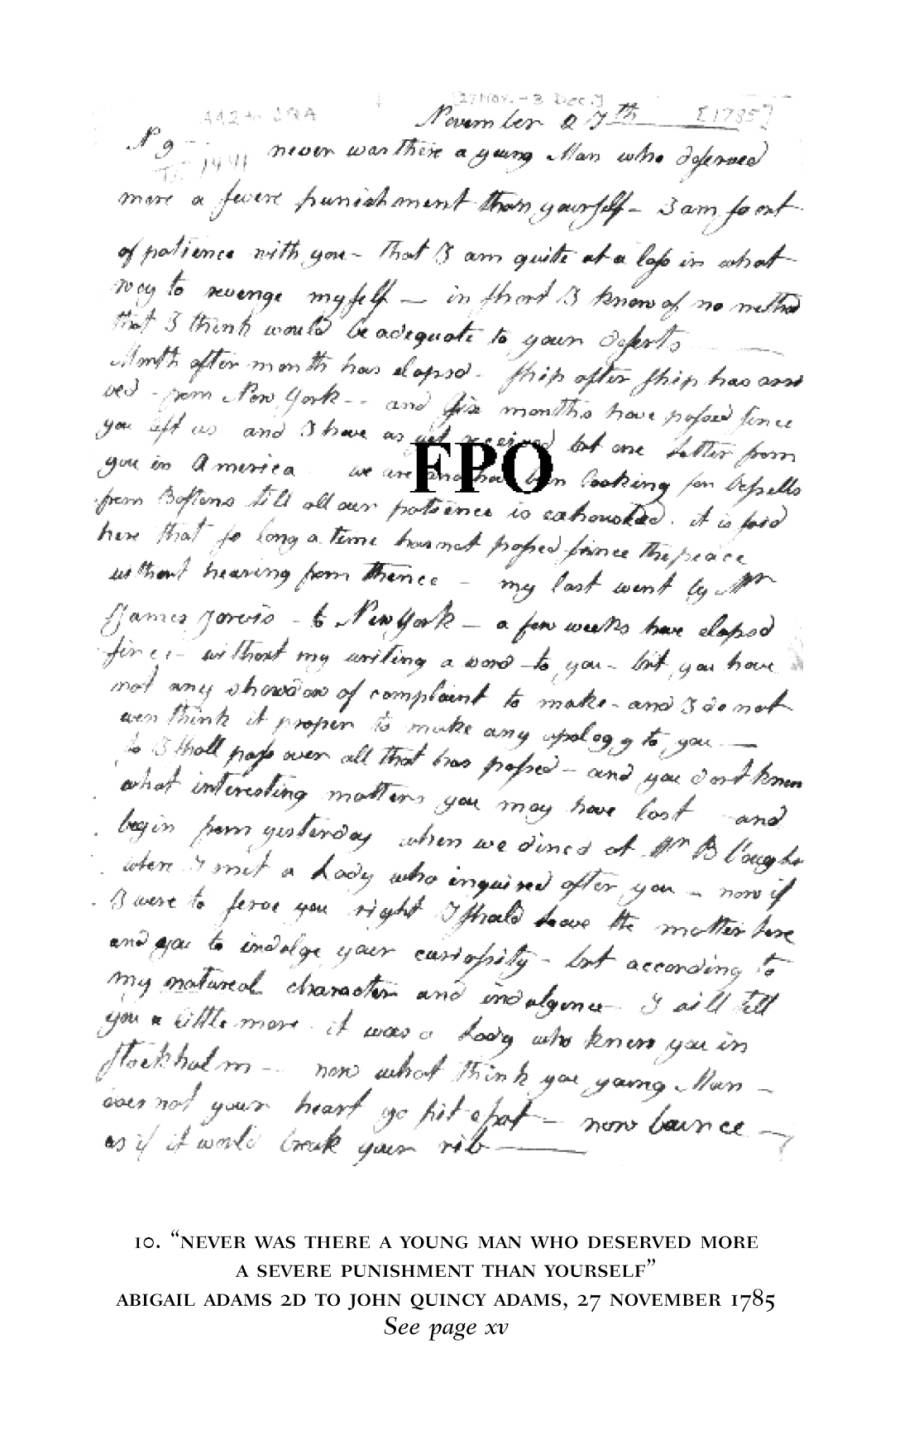 [27 Nov. - 3 Dec.]
AA2 to JQA
November 27th [1785]
N 9
never was there a young Man who deserved
more a severe punishment than yourself - I am so out
of patience with you - that I am quite at a loss in what
way to revenge myself — in short I know of no method
that I think would be adequate to your deserts
Month after month has elapsd - ship after ship has arri
ved - from New York - - and six months have passed since
you left us and I have as yet received but one Letter from
you in America we are looking for vessells
from Bostons till all our patience is exhausted. it is said
here that so long a time has not passed since the peace
without hearing from thence - my last went by Mr
James Jarvis - to New York — a few weeks have elapsd
since - without my writing a word - to you - but you have
not any shadow of complaint to make - and I do not
even think it proper to make any apology to you —
so I shall pass over all that has passed - and you dont know
what interesting matters you may have lost and
begin from yesterday when we dined at Mr B Vaughs
where I met a Lady who inquired after you - now if
I were to serve you right I should leave the matter here
and you to indulge your curiossity - but according to
my natureal character and indulgence I will tell
you a little more. it was a Lady who knew you in
Stockholm - - now what think you young Man -
does not your heart go pit a pat - now bounce -
as if it would break your rib ——
FPO
10. “NEVER WAS THERE A YOUNG MAN WHO DESERVED MORE
A SEVERE PUNISHMENT THAN YOURSELF”
ABIGAIL ADAMS 2D TO JOHN QUINCY ADAMS, 27 NOVEMBER 1785
See page xv